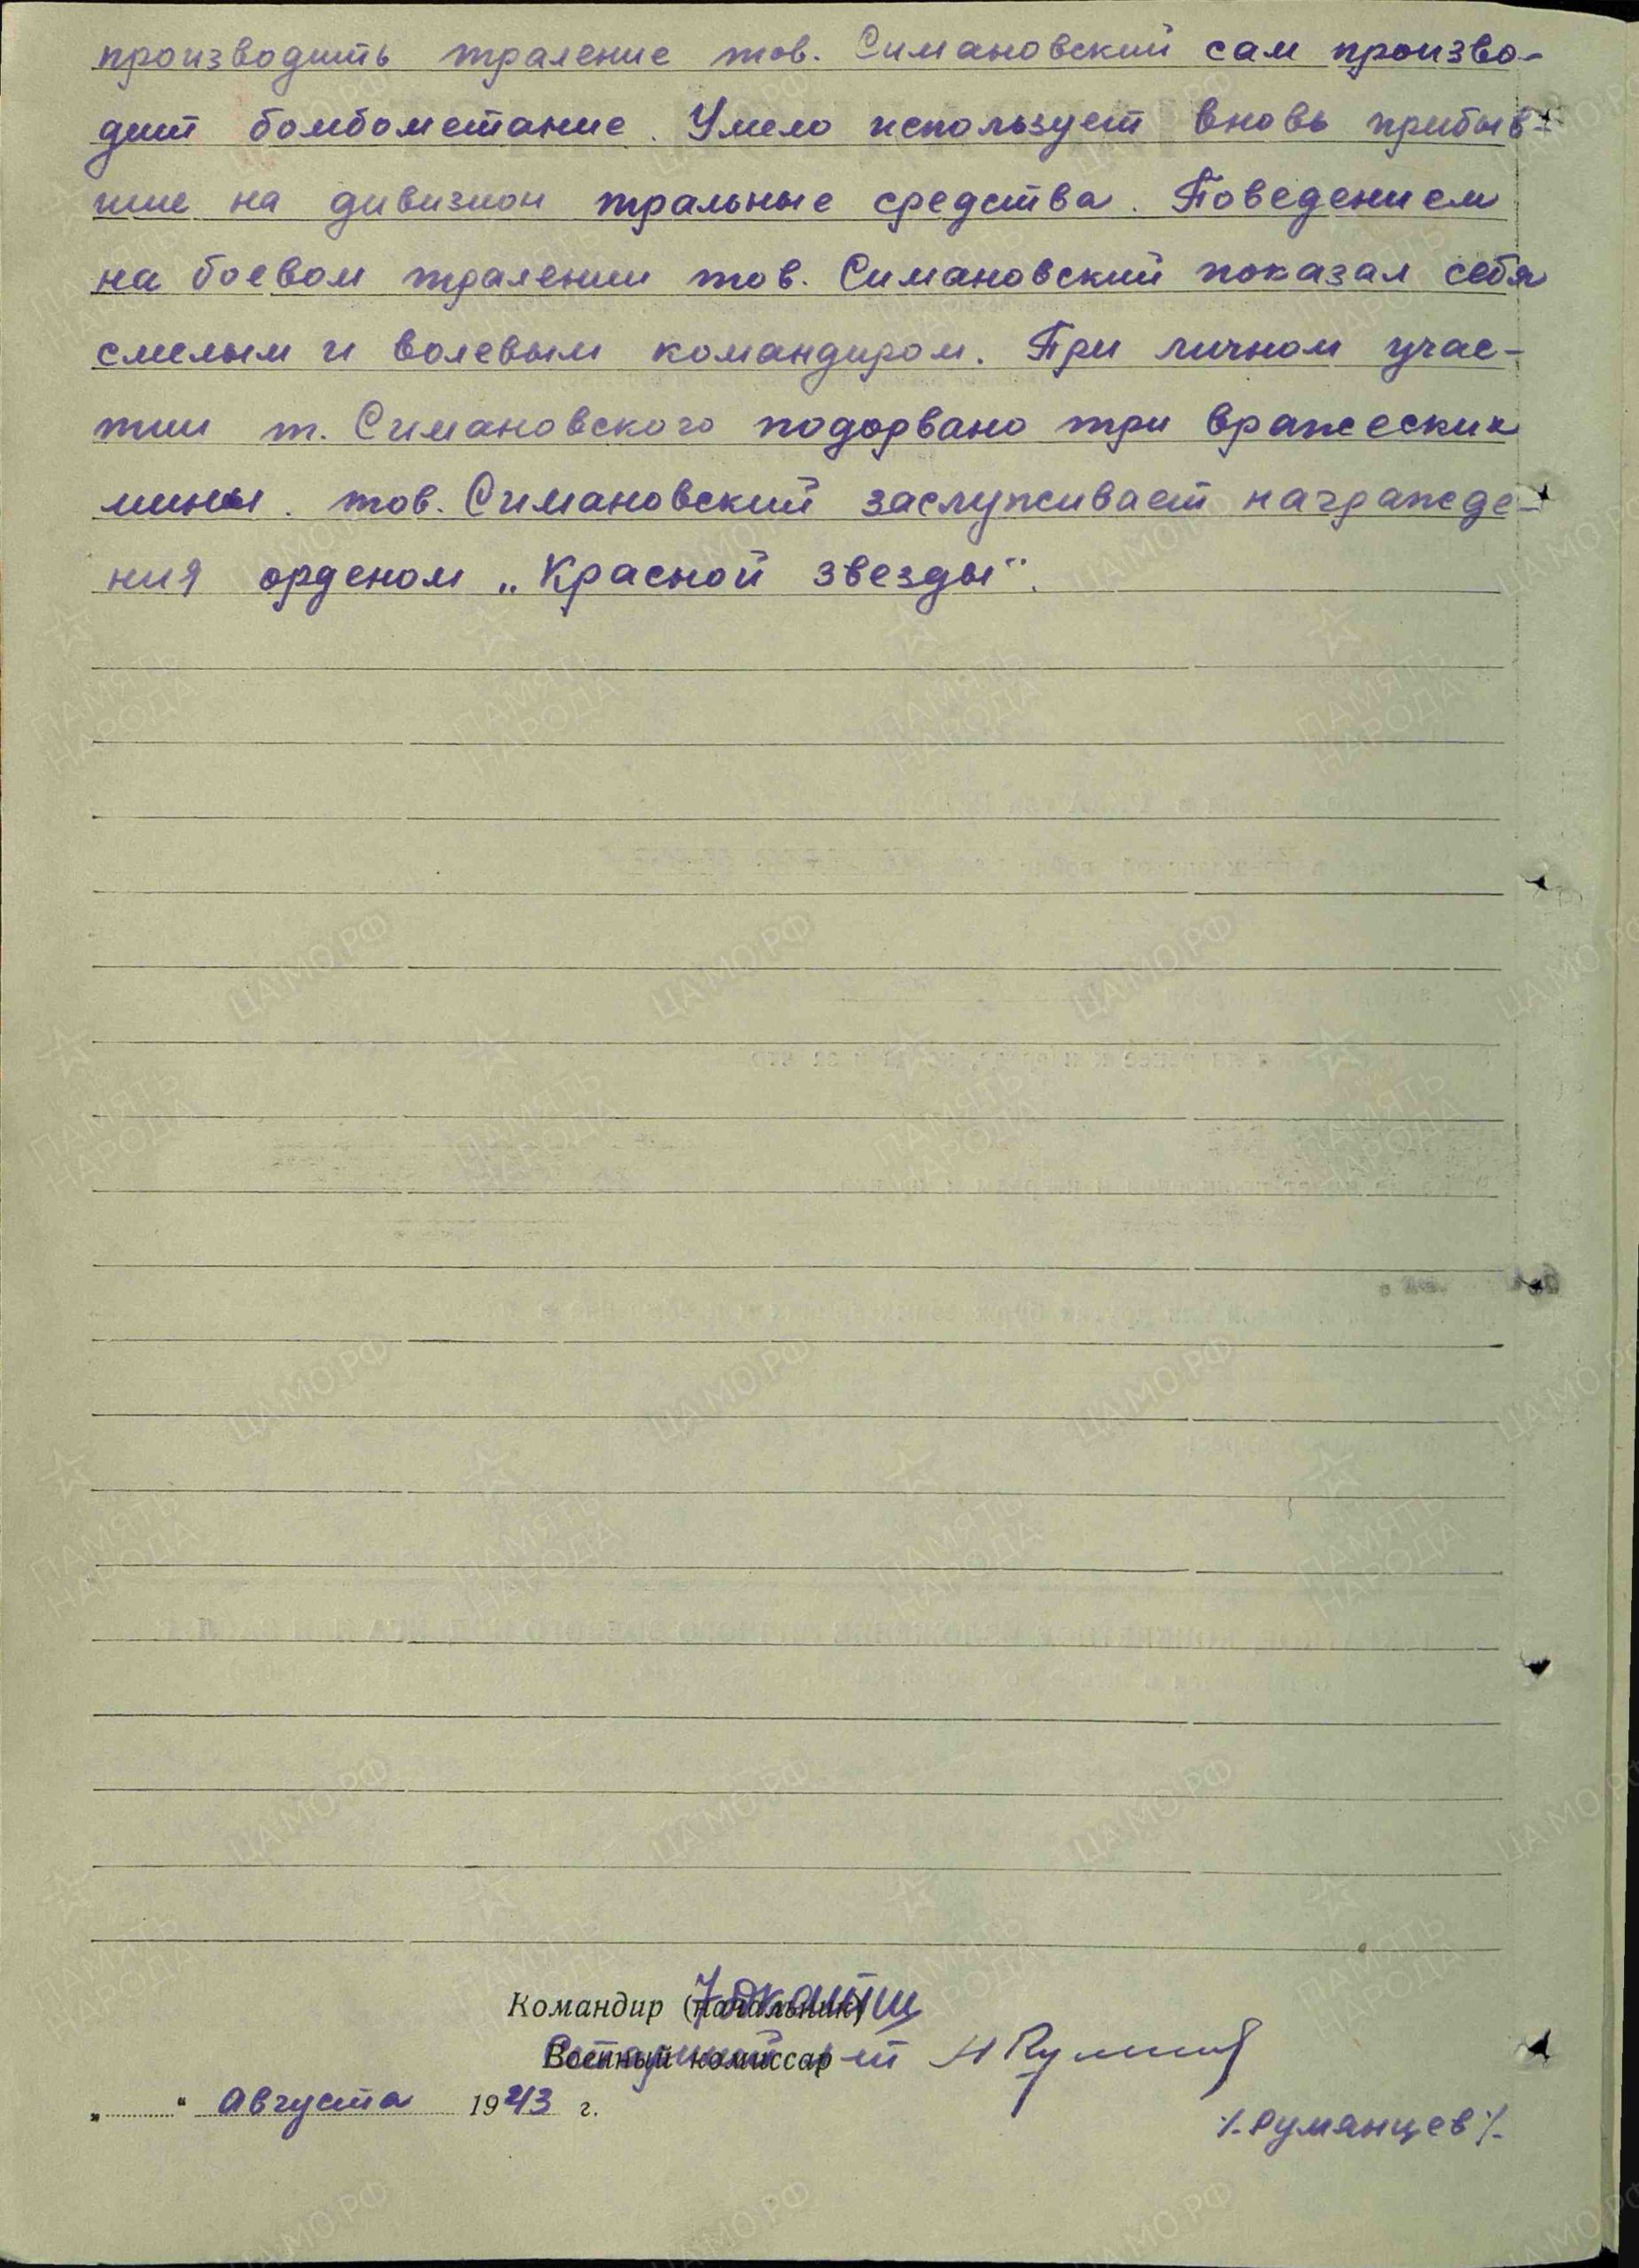 производить траление тов. Симановский сам произво-
дит бомбометание. Умело использует вновь прибыв-
шие на дивизион тральные средства. Поведением
на боевом тралении тов. Симановский показал себя
смелым и волевым командиром. При личном учас-
тии т. Симановского подорвано три вражеских
мины. тов. Симановский заслуживает награжде-
ния орденом „Красной звезды".
Командир (начальник)
Военный комиссар
„ “ Августа 1943 г.
/. Румянцев /.
ПАМЯТЬ НАРОДА
ЦАМО.РФ